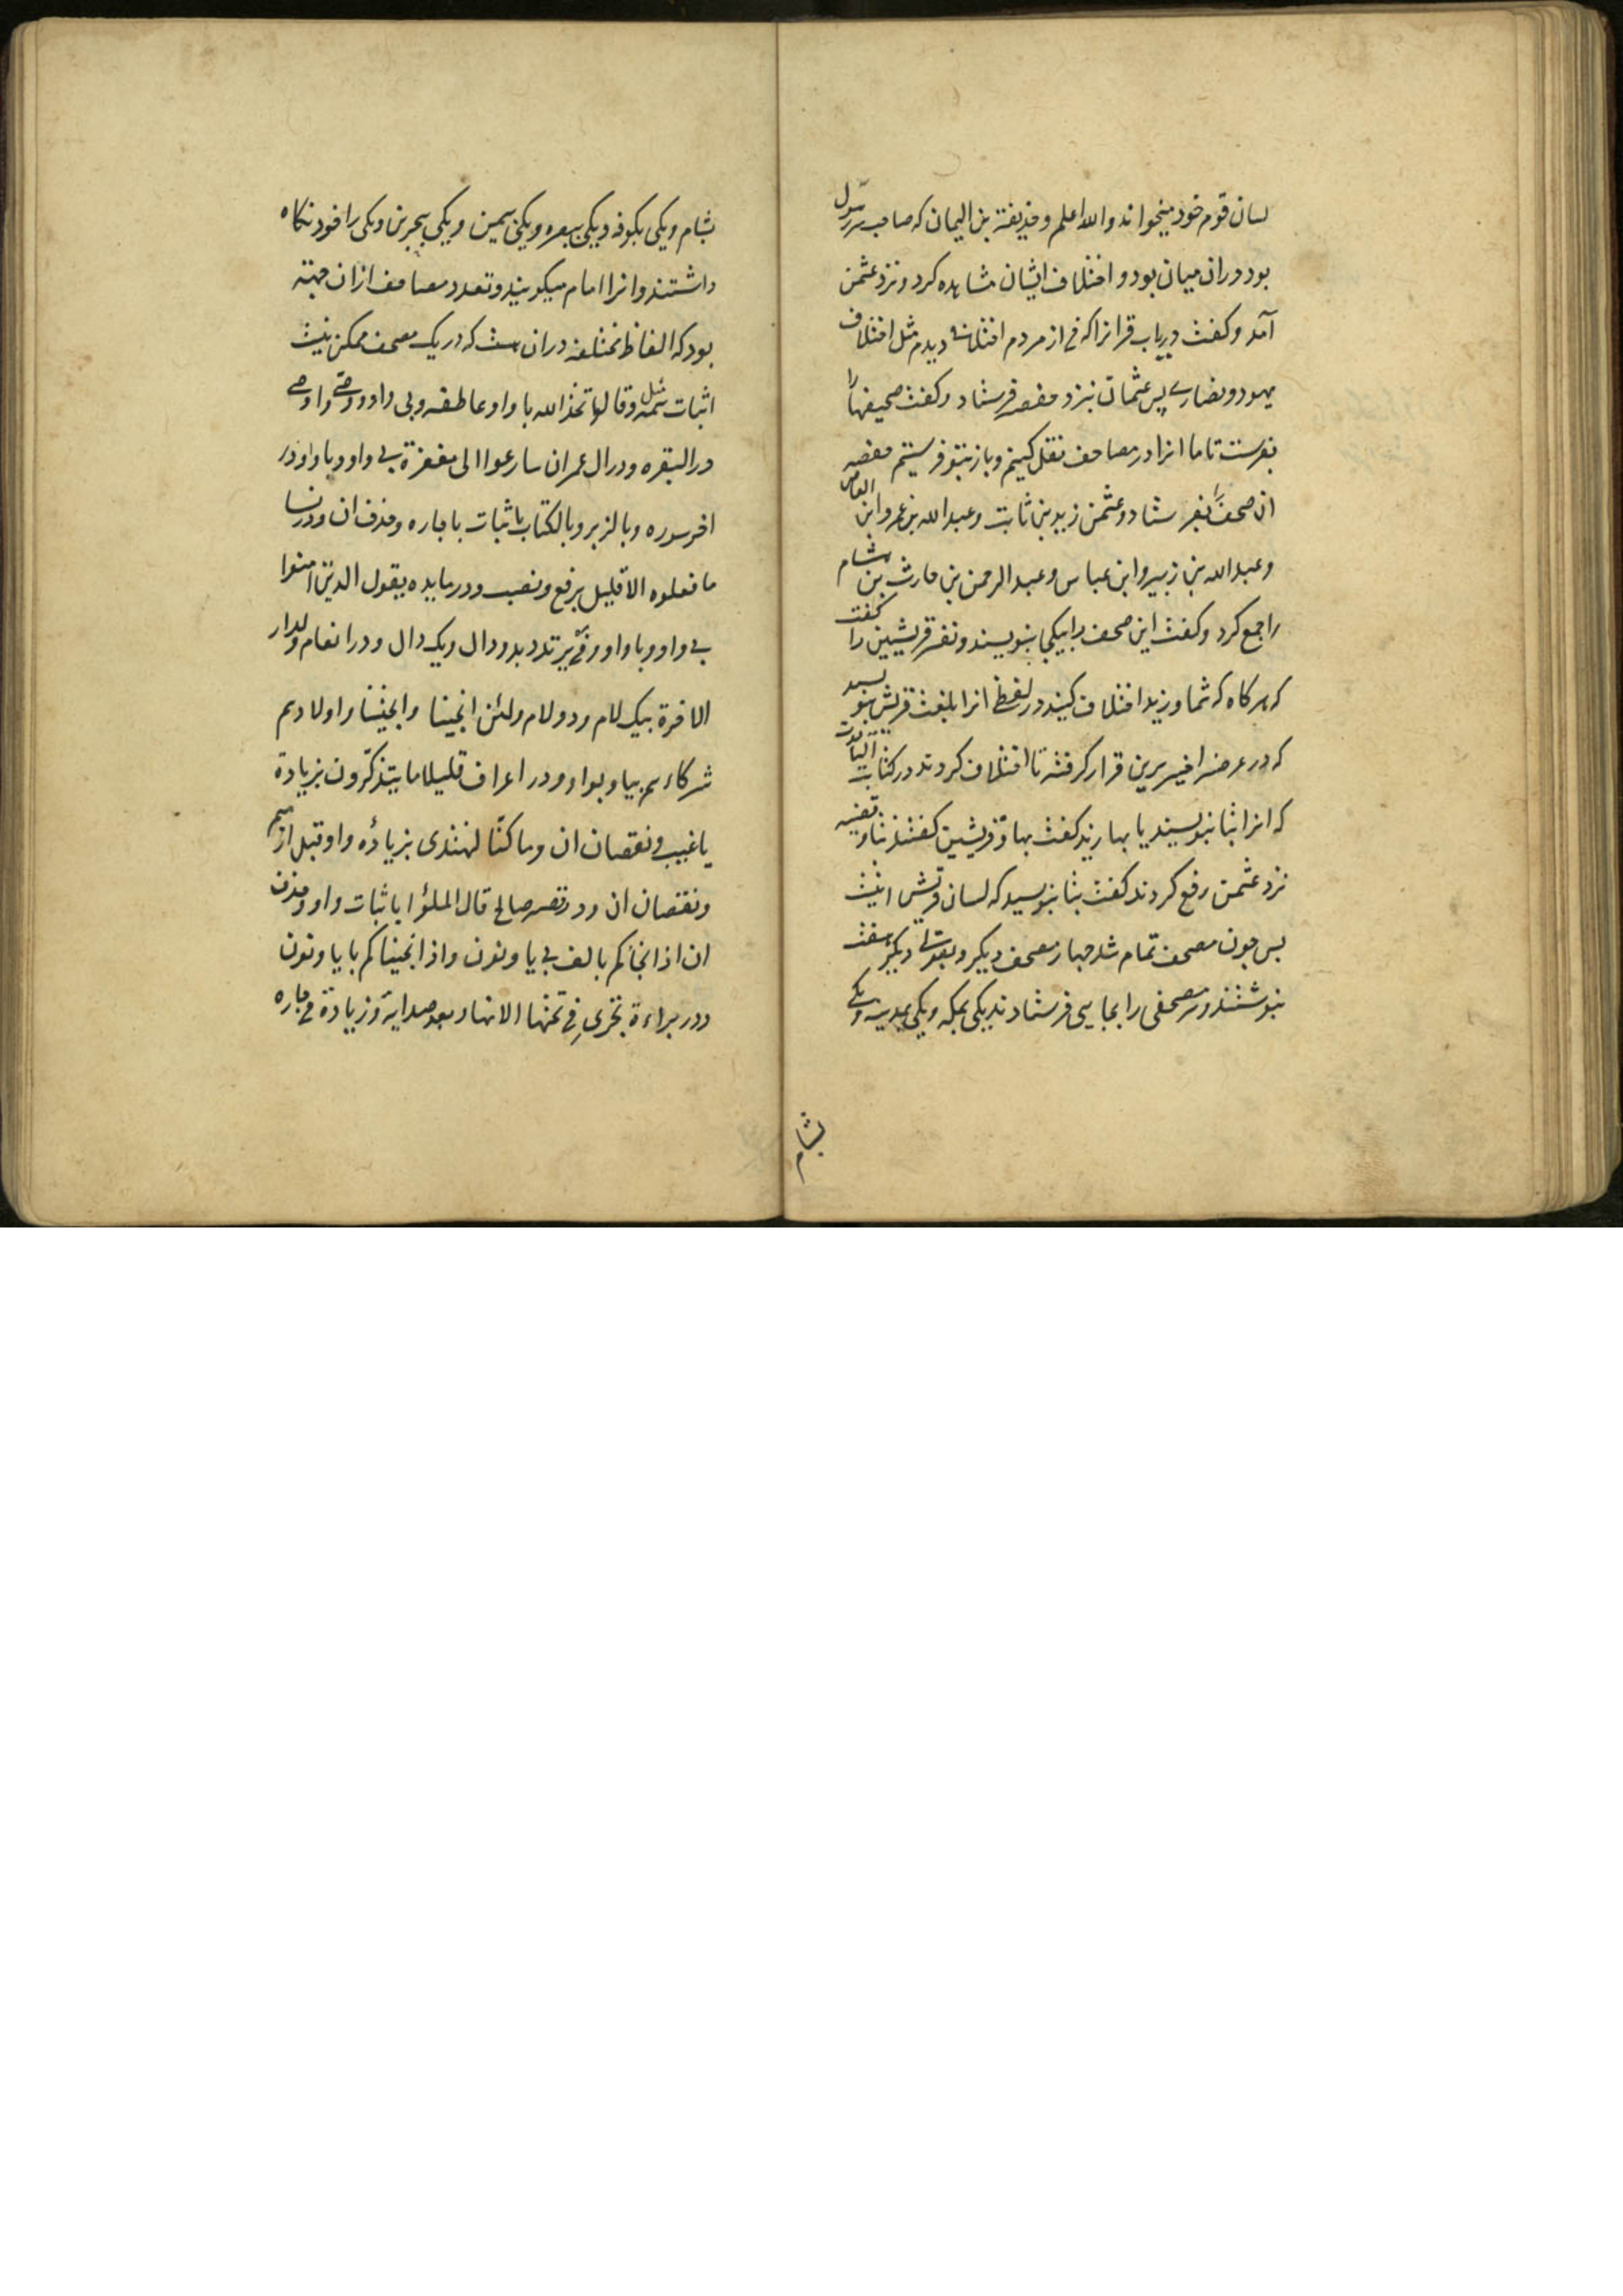 لسان قوم خود میخواند والله اعلم و حذیفة بن الیمان که صاحب سر رسول
بود دران میان بود و اختلاف ایشان مشاهده کرد و نزد عثمن
آمد و کفت دریاب قرانرا که من از مردم اختلافی دیدم مثل اختلاف
یهود و نصاری پس عثمان بنزد حفصه فرستاد و کفت صحیفها را
بفرست تا ما انرا در مصاحف نقل کنیم و باز بتو فرستیم حفصه
ان صحف را بفرستاد و عثمن زید بن ثابت و عبد الله بن عمرو ابن العاص
و عبد الله بن زبیر و ابن عباس و عبد الرحمن بن حارث بن هشام
را جمع کرد و کفت این صحف را بیکجا بنویسند و نفر قریشیین را کفت
که هرکاه که شما و زید اختلاف کنید در لفظی انرا بلغت قریش بنویسید
که در عرضه اخیر برین قرار کرفته تا اختلاف کردند در کتابت التابوت
که انرا بتا بنویسند یا بها زید کفت بها و قریشین کفتند بتا و قضیه
نزد عثمن رفع کردند کفت بتا بنویسید که لسان قریش اینست
پس چون مصحف تمام شد چهار مصحف دیکر و بقولی دیکر هفت
بنوشتند و هر مصحفی را بجایی فرستادند یکی بمکه و یکی بمدینه و یکی
بشام
بشام و یکی بکوفه و یکی ببصره و یکی بیمن و یکی ببحرین و یکی را خود نکاه
داشتند و انرا امام میکویند و تعدد مصاحف ازان جهت
بود که الفاظ مختلفه دران هست که در یک مصحف ممکن نیست
اثبات همه مثل و قالوا تخذ الله با واو عاطفه و بی واو و وصی و اوصی
در البقره و در ال عمران سارعوا الی مغفرة بی واو و با واو و در
اخر سوره و بالزبر و بالکتاب باثبات با جاره و حذف ان و در نسا
ما فعلوه الا قلیل برفع و نصب و در مایده یقول الذین امنوا
بی واو و با واو و من یرتدد بدو دال و یک دال و در انعام و لدار
الاخرة بیک لام و دو لام و لئن انجینا و انجیتنا و اولادهم
شرکاءهم بیا و بواو و در اعراف قلیلا ما یتذکرون بزیادة
یا غیب و نقصان ان و ما کنا لنهتدی بزیاده واو قبل از ما
و نقصان ان و در قصه صالح قال الملؤا باثبات واو و حذف
ان و اذ انجاکم بالف بی یا و نون و اذ انجیناکم با یا و نون
و در براءة تجری فی تحتها الانهار بعد صد ایه و زیادة من جاره